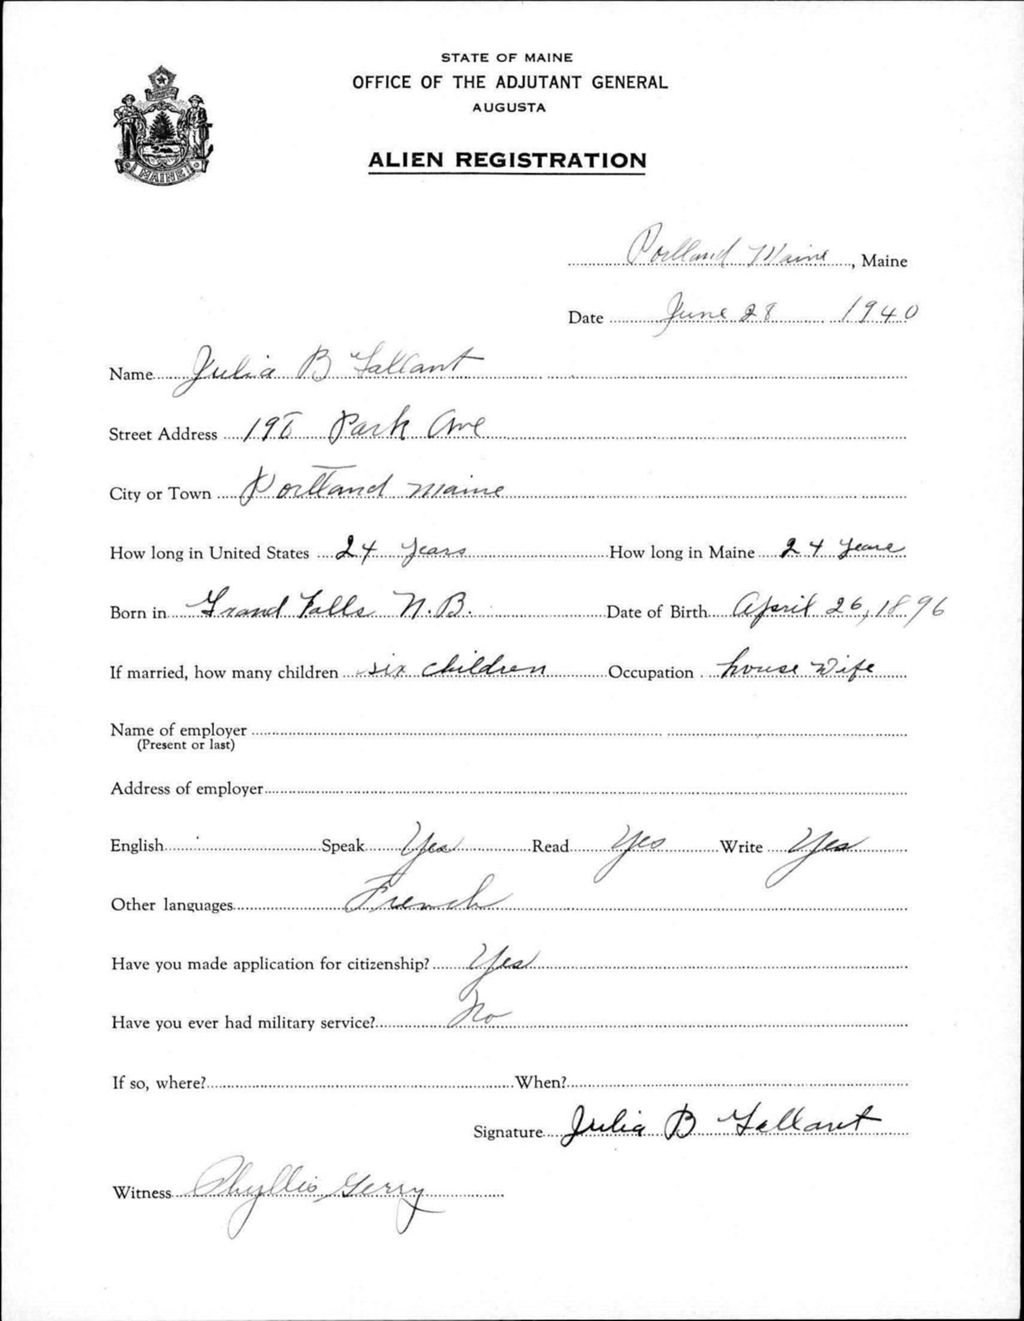 STATE OF MAINE
OFFICE OF THE ADJUTANT GENERAL
AUGUSTA
ALIEN REGISTRATION
MAINE
Portland Maine, Maine
Date June 28 1940
Name Julia B Gallant
Street Address 198 Park Ave
City or Town Portland Maine
How long in United States 24 years How long in Maine 24 years
Born in Grand Falls N.B. Date of Birth April 26, 1896
If married, how many children six children Occupation house wife
Name of employer
(Present or last)
Address of employer
English Speak Yes Read Yes Write Yes
Other languages French
Have you made application for citizenship? Yes
Have you ever had military service? No
If so, where? When?
Signature Julia B Gallant
Witness Phyllis Gerry